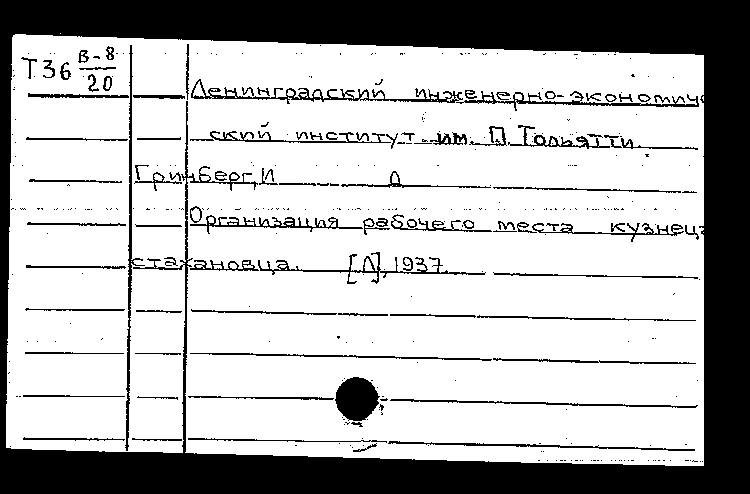 Т36 В-8/20
Ленинградский инженерно-экономиче
ский институт им. П. Тольятти.
Гринберг, И Д
Организация рабочего места кузнеца
стахановца. [Л], 1937.